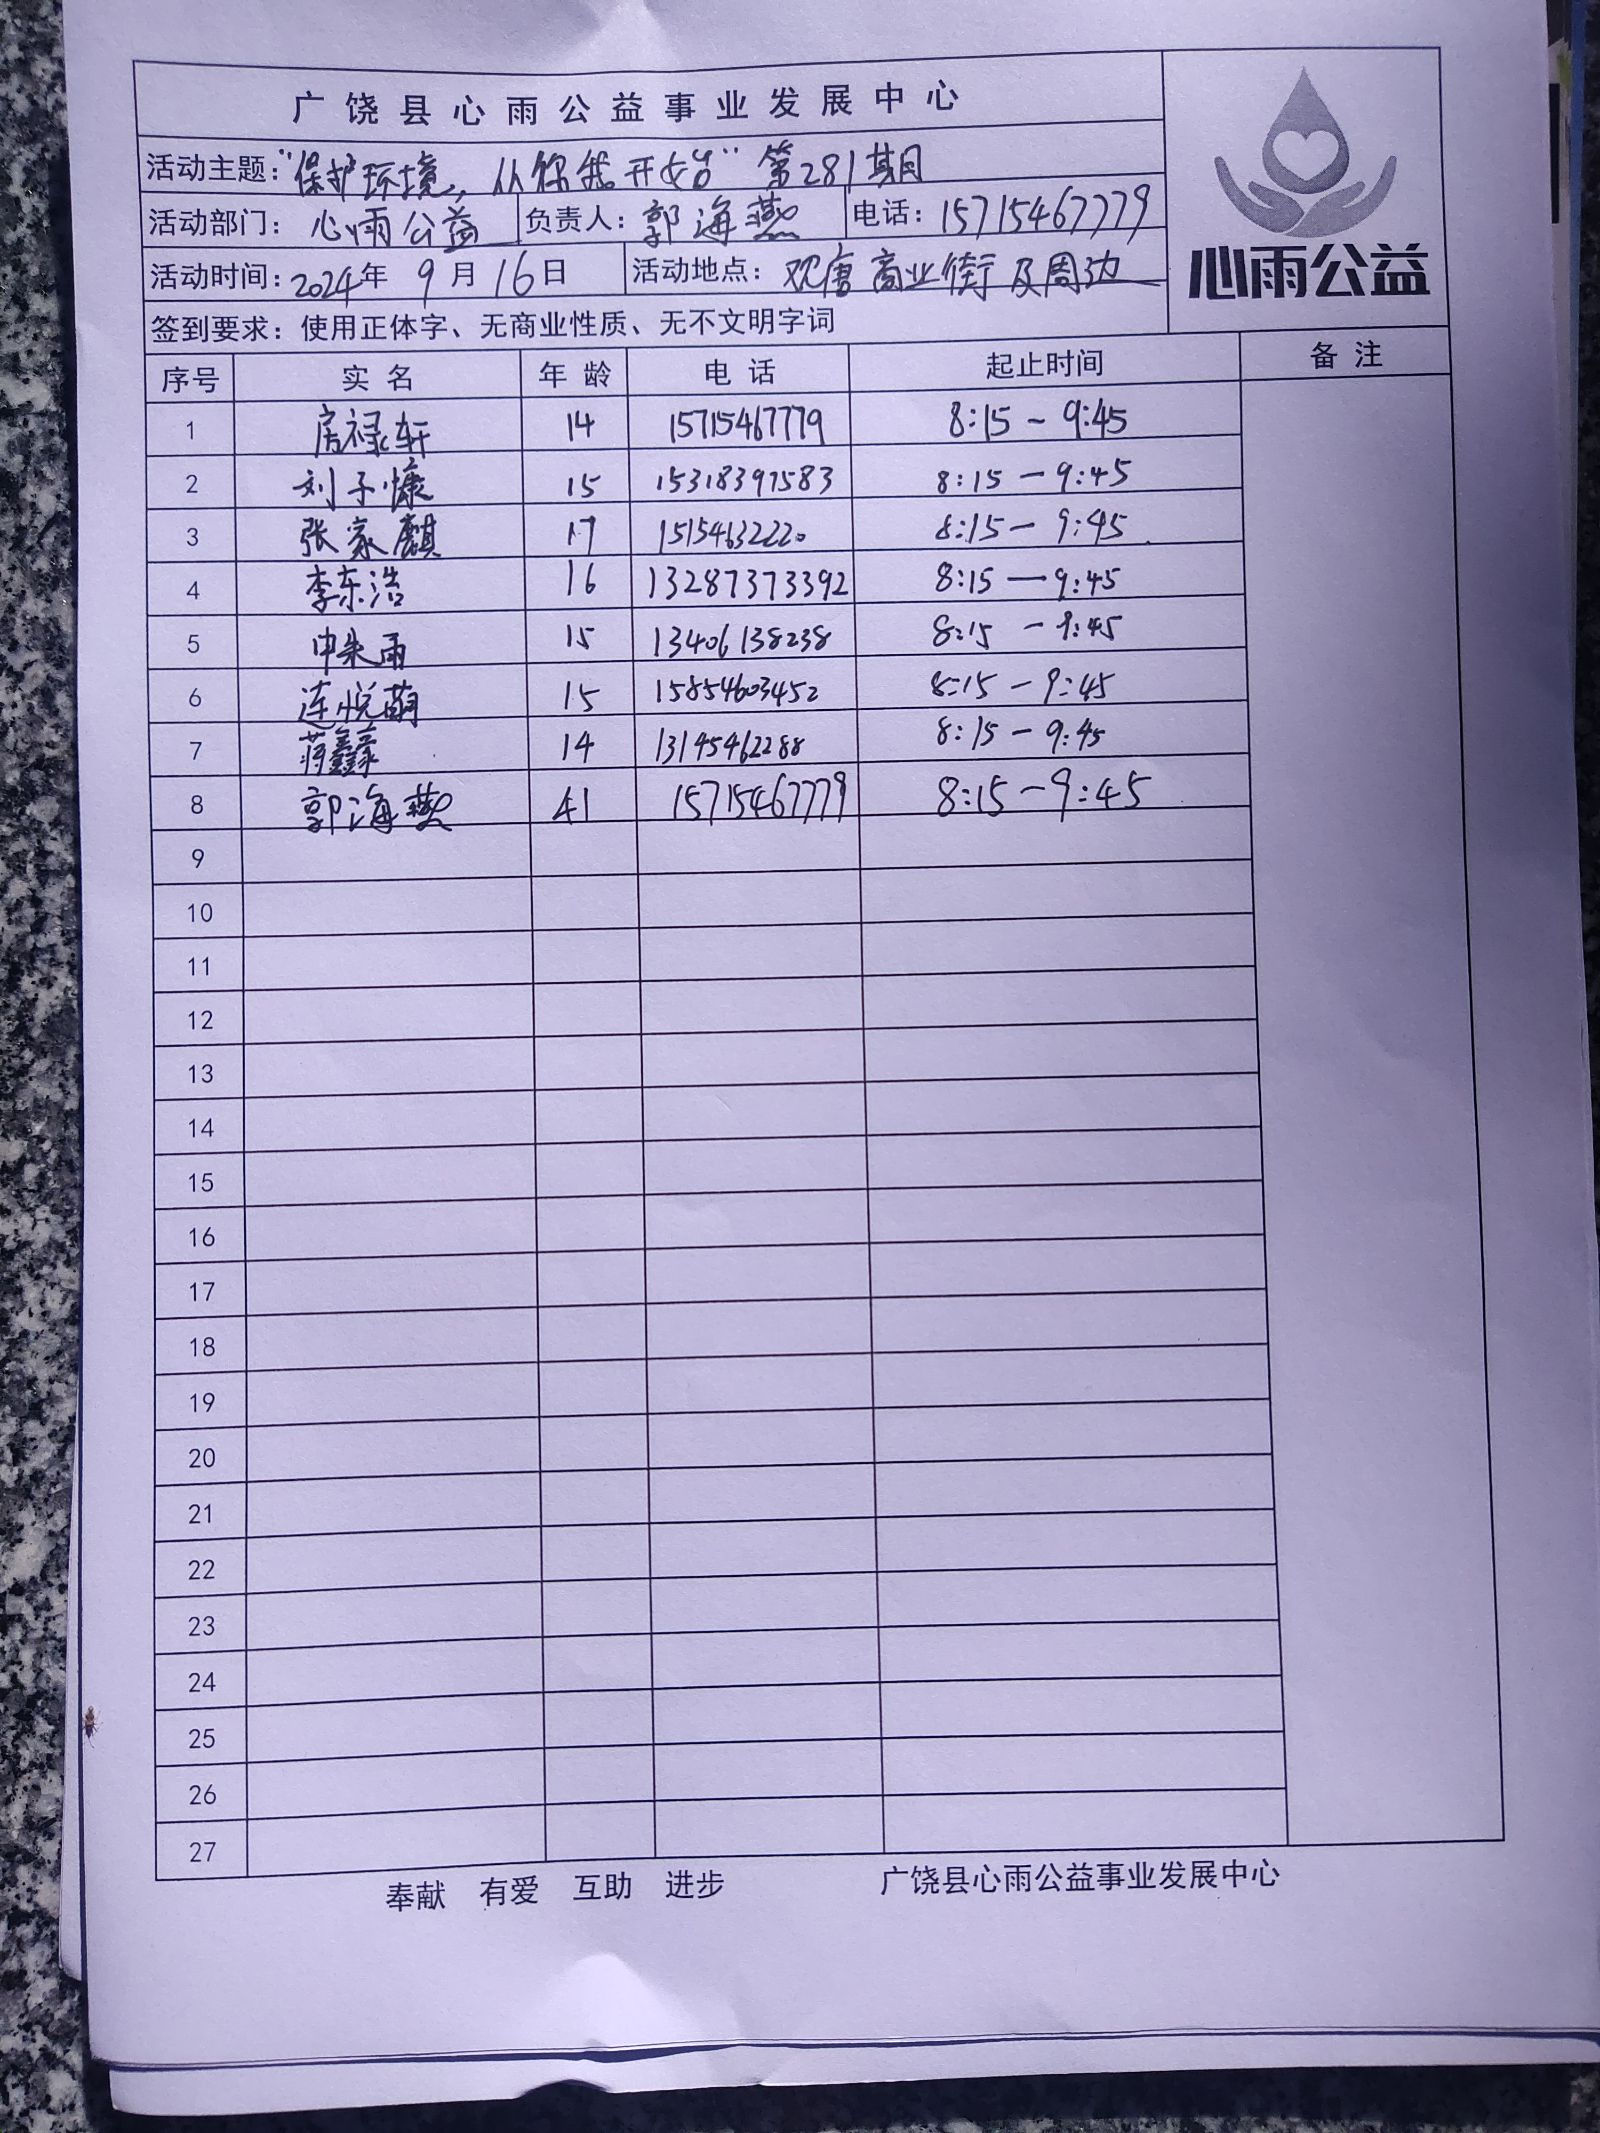 广饶县心雨公益事业发展中心
活动主题：“保护环境，从你我开始”第281期
心雨公益
活动部门：心雨公益 负责人：郭海燕 电话：15715467779
活动时间：2024年9月16日 活动地点：观唐商业街及周边
签到要求：使用正体字、无商业性质、无不文明字词
序号 实名 年龄 电话 起止时间 备注
1 房禄轩 14 15715467779 8:15－9:45
2 刘子慷 15 15318397583 8:15－9:45
3 张家麒 17 15154632220 8:15－9:45
4 李东浩 16 13287373392 8:15－9:45
5 申朱雨 15 13406138238 8:15－9:45
6 连悦萌 15 15854603452 8:15－9:45
7 蒋鑫 14 13145462288 8:15－9:45
8 郭海燕 41 15715467779 8:15－9:45
9
10
11
12
13
14
15
16
17
18
19
20
21
22
23
24
25
26
27
奉献 有爱 互助 进步 广饶县心雨公益事业发展中心